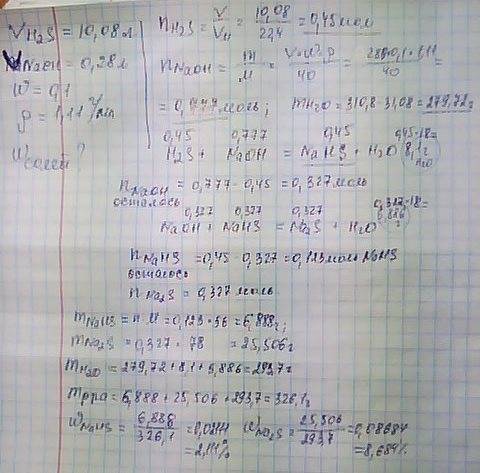 V H2S = 10,08 л
V NaOH = 0,28 л
W = 0,1
ρ = 1,11 г/мл
W солей ?
n H2S = V/VM = 10,08/22,4 = 0,45 мол
n NaOH = m/M = V·W·ρ/40 = 280·0,1·1,11/40 =
= 0,777 моль; m H2O = 310,8 - 31,08 = 279,72 г
0,45 0,777 0,45 0,45·18=
H2S + NaOH = NaHS + H2O 8,1 г H2O
n NaOH = 0,777 - 0,45 = 0,327 моль
осталось
0,327 0,327 0,327 0,327·18=
NaOH + NaHS = Na2S + H2O 5,886 г
n NaHS = 0,45 - 0,327 = 0,123 моль NaHS
осталось
n Na2S = 0,327 моль
m NaHS = n·M = 0,123·56 = 6,888 г;
m Na2S = 0,327·78 = 25,506 г
m H2O = 279,72 + 8,1 + 5,886 = 293,7 г
m рра = 6,888 + 25,506 + 293,7 = 326,1 г
W NaHS = 6,888/326,1 = 0,0211 W Na2S = 25,506/293,7 = 0,08684
= 2,11% = 8,684%